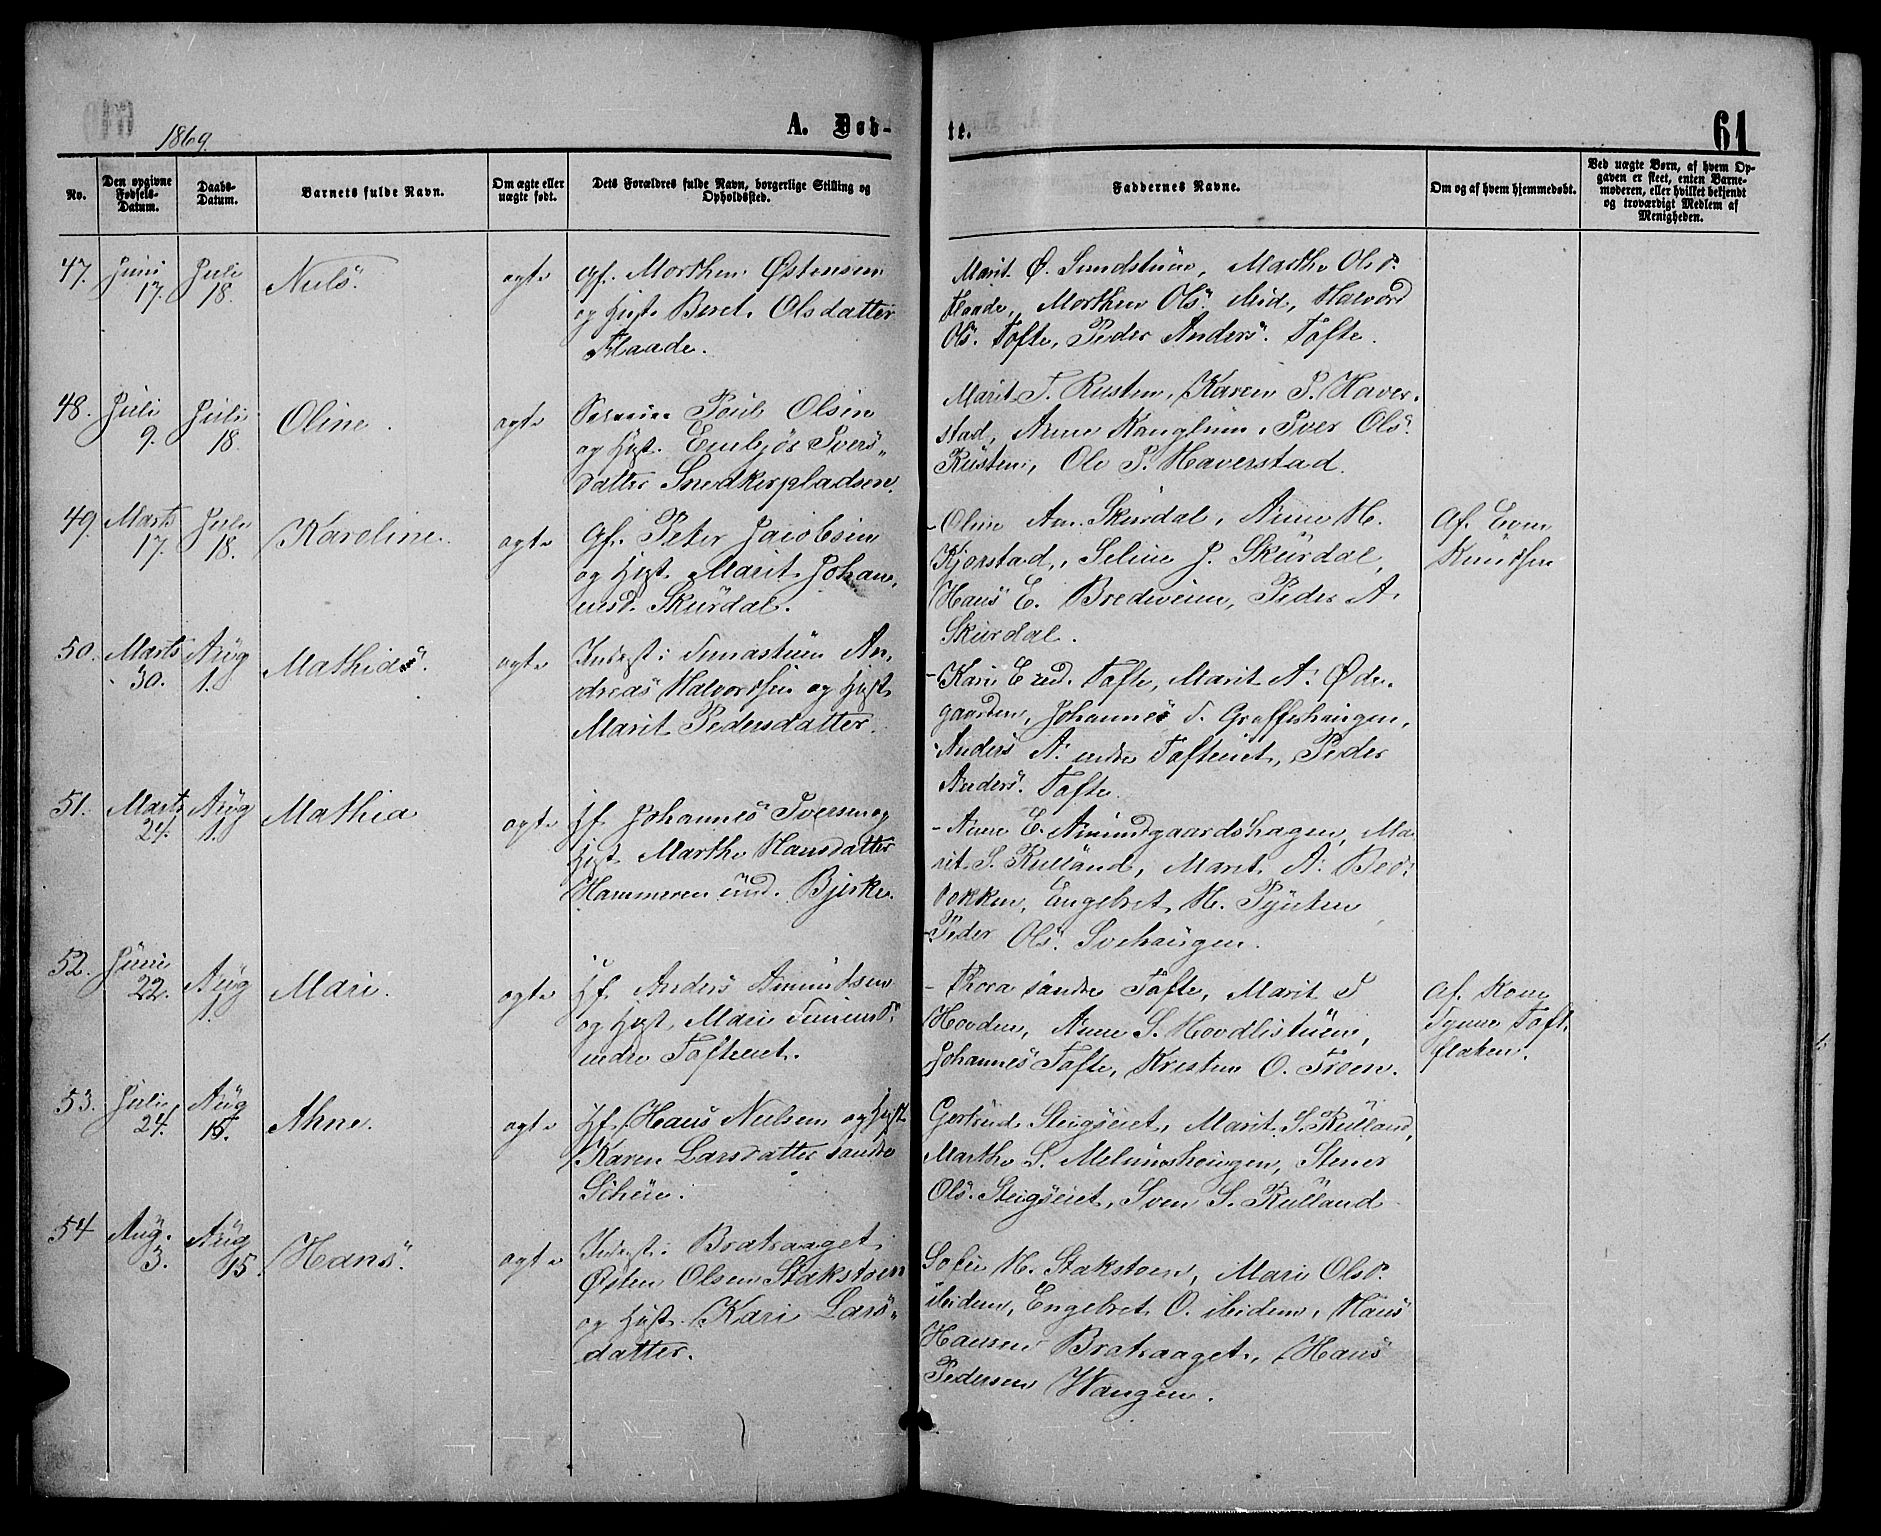 1869.
A. Døb-
te.
61
No.
Den opgivne Fødsels-Datum.
Daabs-Datum.
Barnets fulde Navn.
Om ægte eller uægte født.
Dets Forældres fulde Navn, borgerlige Stilling og Opholdssted.
Faddernes Navne.
Om og af hvem hjemmedøbt.
Ved uægte Børn, af hvem Opgaven er skeet, enten Barnemoderen, eller hvilket bekjendt og troværdigt Medlem af Menigheden.
47. Juni 17. Juli 18. Niels. ægte
Gf. Morthen Østensen
og Hust. Beret Olsdatter
Flaade.
Marit Ø. Sundstuen, Marthe Olsd.
Flaade, Morthen Ols. ibid, Halvord
Ols. Tofte, Peder Anders. Tofte.
48. Juli 9. Juli 18. Oline. ægte
Poul Olsen
og Hust. Embjør Ivers-
datter Snedkerpladsen.
Marit T. Rusten, Karen P. Haver-
stad, Anne Kanglien, Iver Ols.
Rusten, Ole P. Haverstad.
49. Marts 17. Juli 18. Karoline. ægte
Gf. Peter Jacobsen
og Hust. Marit Johan-
nesd. Skurdal.
- Oline An. Skurdal, Anne H.
Kjorstad, Seline J. Skurdal,
Hans E. Bredeveien, Peder A.
Skurdal.
Af. Even
Knudsen
50. Marts 30. Aug 1. Mathias. ægte
Inderst i An-
dreas Halvordsen og Hust.
Marit Pedersdatter.
- Kari E. Tofte, Marit A. Øde-
gaarden, Johannes T. Graffershaugen,
Anders A. nedre Tofteeiet, Peder
Anders. Tofte.
51. Marts 24. Aug 1. Mathea ægte
Hf. Johannes Iversen og
Hust. Marthe Hansdatter
Hammeren und. Bjerke.
- Anne E. Amundgaardshagen, Ma-
rit S. Rulland, Marit A.
Engebret H. Pynten
- Peder Ols. Svehaugen.
52. Juni 22. Aug 1. Mari. ægte
Hf. Anders Amundsen
og Hust. Mari
nedre Tofteeiet.
- Thora søndre Tofte, Marit T
Hovden, Anne S. Hovdlistuen,
Johannes Tofte, Kristen O. Troen.
Af. Kone
Tofte
flaten.
53. Juli 24. Aug 15. Ahne. ægte
Hf. Hans Nielsen og Hust
Karen Larsdatter søndre
Scheie.
Gertrud Steigseiet, Marit S. Rulland,
Marthe S. Stener
Ols. Steigseiet, Sven S. Rulland
54 Aug. 3. Aug 15. Hans. ægte
Inderst i Brataaget
Østen Olsen Stakstoen
og Hust. Kari Lars-
datter.
Sofie H. Stakstoen, Mari Olsd.
ibidem, Engebret O. ibidem, Hans
Hansen Brataaget, Hans
Pedersen Wangen.